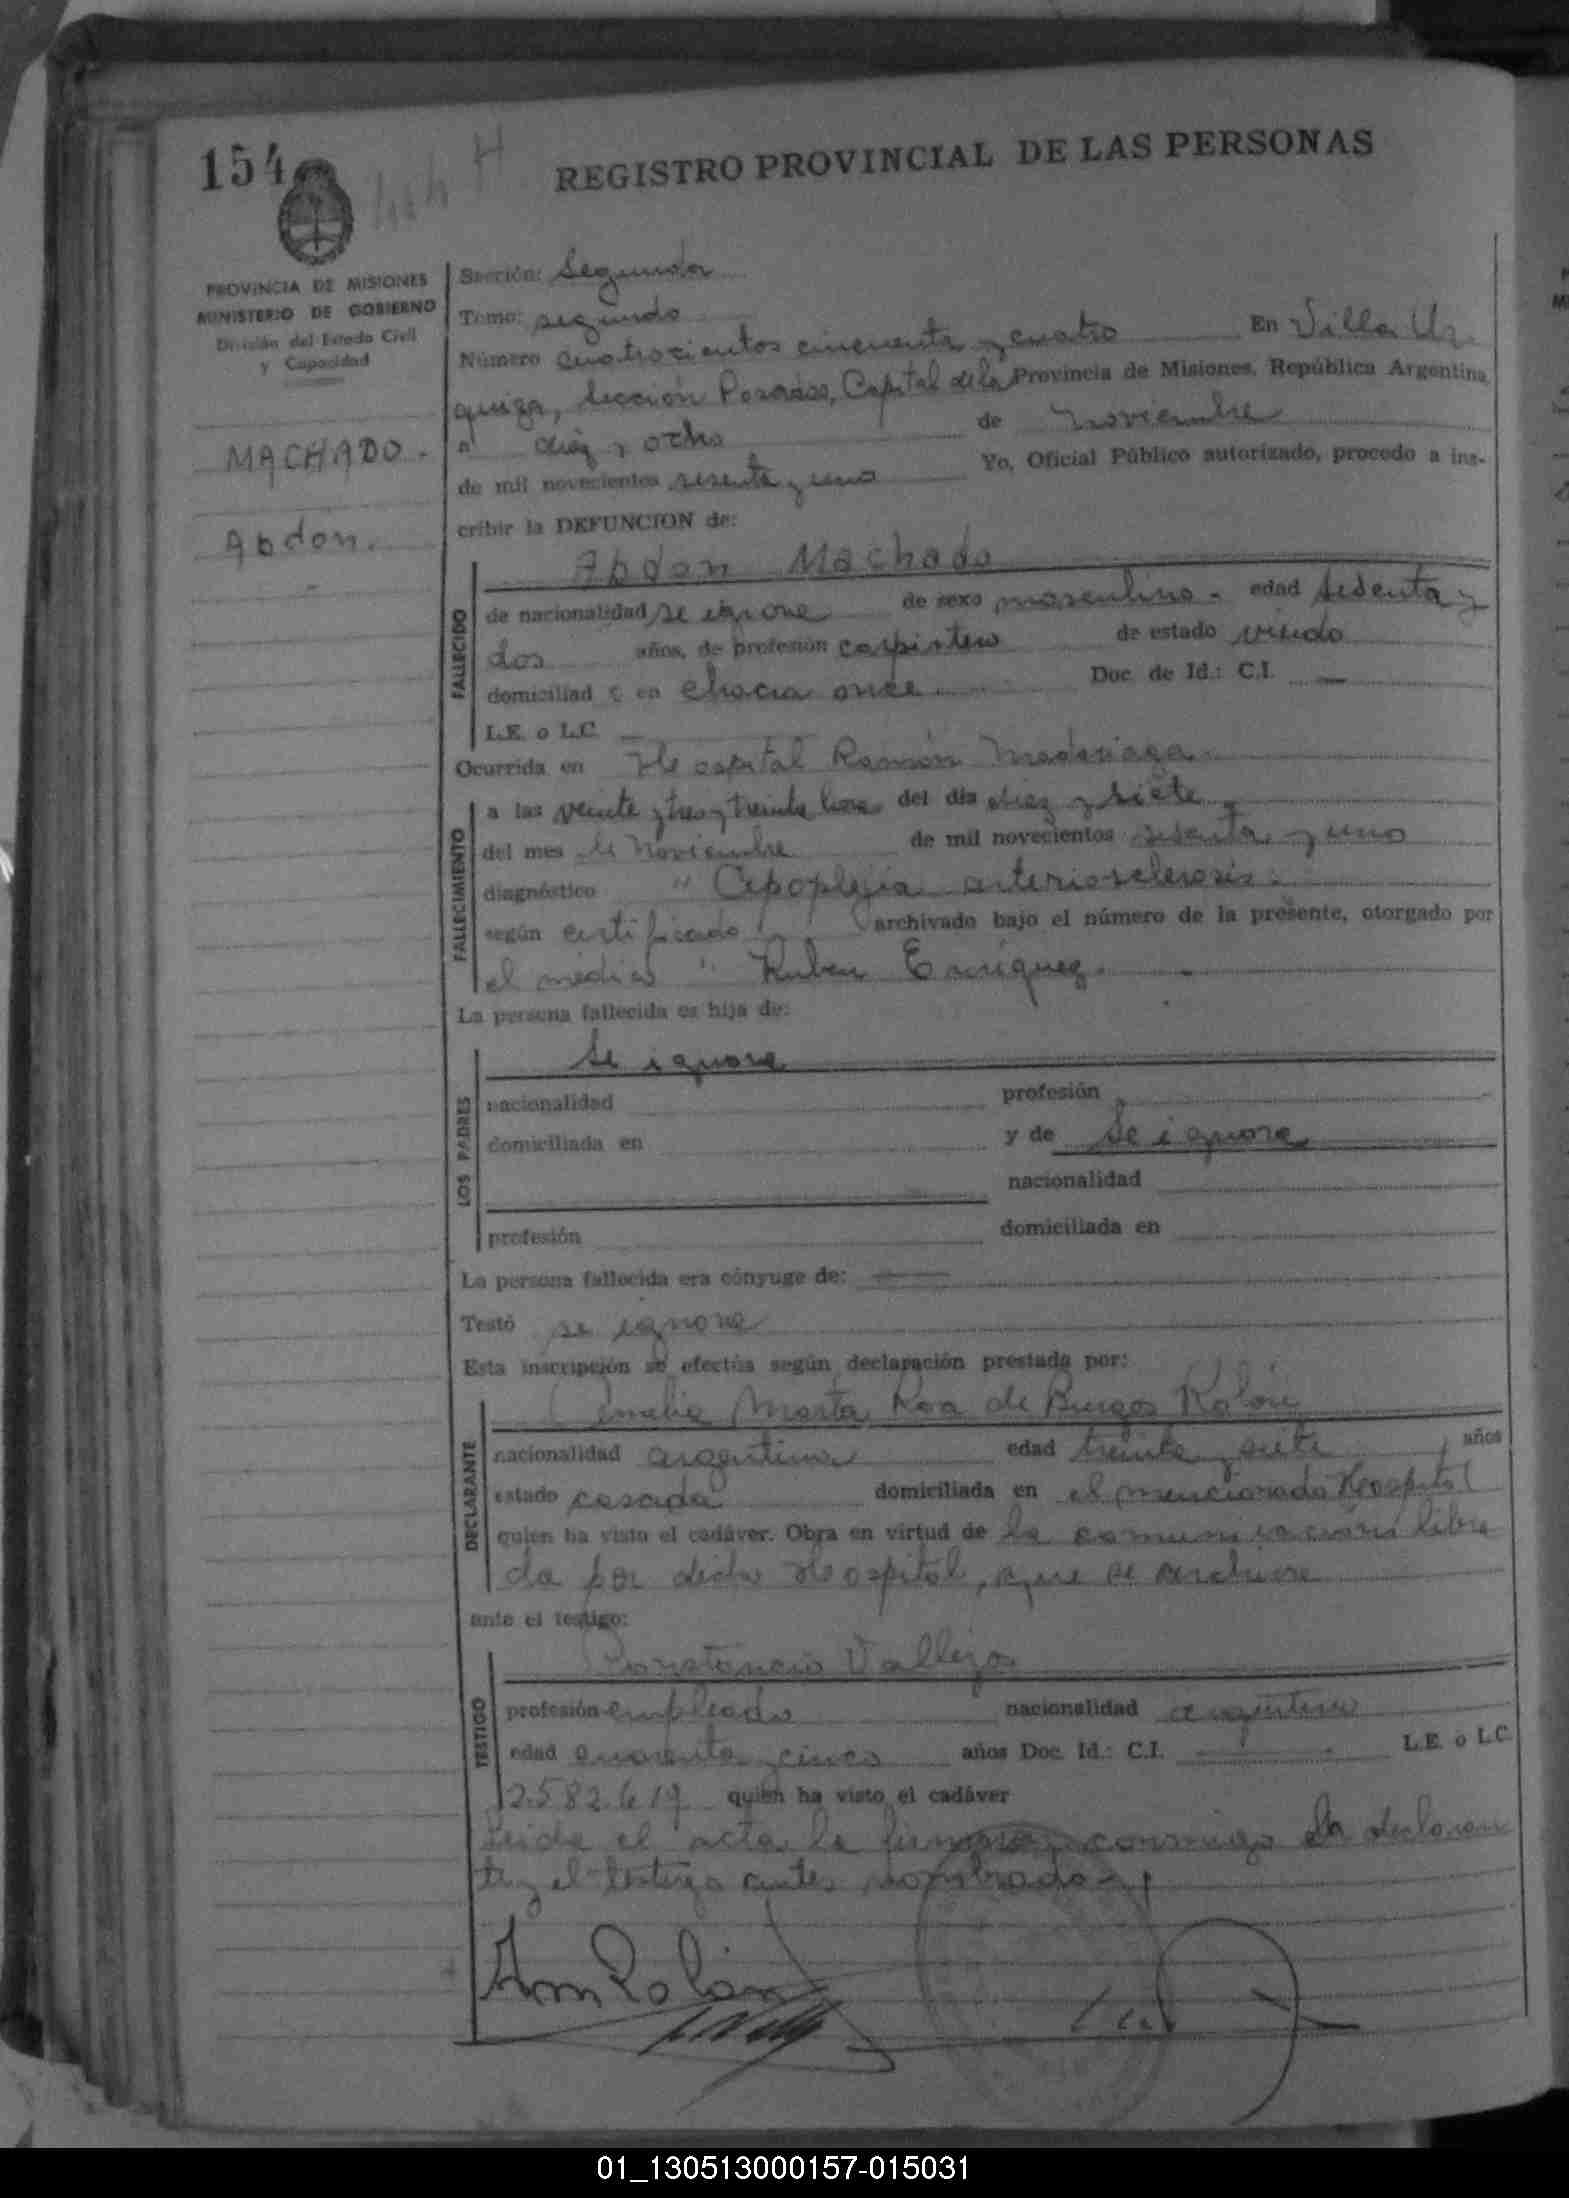 154
REGISTRO PROVINCIAL DE LAS PERSONAS
PROVINCIA DE MISIONES
MINISTERIO DE GOBIERNO
División del Estado Civil
y Capacidad
MACHADO.
Abdon.
Sección: Segunda
Tomo: segundo
Número cuatrocientos cincuenta y cuatro En Villa Ur
quiza, Sección Posadas, Capital de la Provincia de Misiones, República Argentina,
a diez y ocho de noviembre
de mil novecientos sesenta y uno Yo, Oficial Público autorizado, procedo a ins-
cribir la DEFUNCION de:
Abdon Machado
FALLECIDO
de nacionalidad se ignora de sexo masculino.- edad sesenta y
dos años, de profesión carpintero de estado viudo
domiciliad o en chacra once Doc. de Id.: C.I. —
L.E. o L.C. —
Ocurrida en Hospital Ramón Madariaga
FALLECIMIENTO
a las veinte y tres y treinta horas del día diez y siete
del mes de Noviembre de mil novecientos sesenta y uno
diagnóstico " Apoplejía arteriosclerosis
según certificado archivado bajo el número de la presente, otorgado por
el médico " Ruben Enriquez.
La persona fallecida es hija de:
LOS PADRES
Se ignora
nacionalidad profesión
domiciliada en y de Se ignora
nacionalidad
profesión domiciliada en
La persona fallecida era cónyuge de: —
Testó se ignora
Esta inscripción se efectúa según declaración prestada por:
DECLARANTE
Amalia Marta Roa de Burgos Rolón
nacionalidad argentina edad treinta y siete años
estado casada domiciliada en el mencionado Hospital
quien ha visto el cadáver. Obra en virtud de la comunicación libra
da por dicho Hospital, que se archiva
ante el testigo:
TESTIGO
Constancio Vallejos
profesión empleado nacionalidad argentino
edad cuarenta y cinco años Doc. Id.: C.I. — L.E. o L.C.
2.582.619 quien ha visto el cadáver
Leída el acta la firman conmigo la declaran
te y el testigo antes nombrado
Am Rolón
01_130513000157-015031